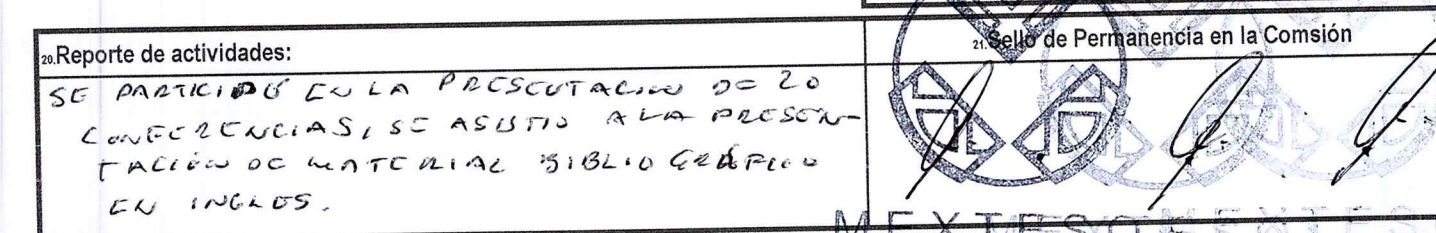 20.Reporte de actividades:
21.Sello de Permanencia en la Comsión
SE PARTICIPÓ EN LA PRESENTACIÓN DE 20
CONFERENCIAS, SE ASISTIO A LA PRESEN-
TACIÓN DE MATERIAL BIBLIOGRÁFICO
EN INGLES.
MEXTESOL MEXTES